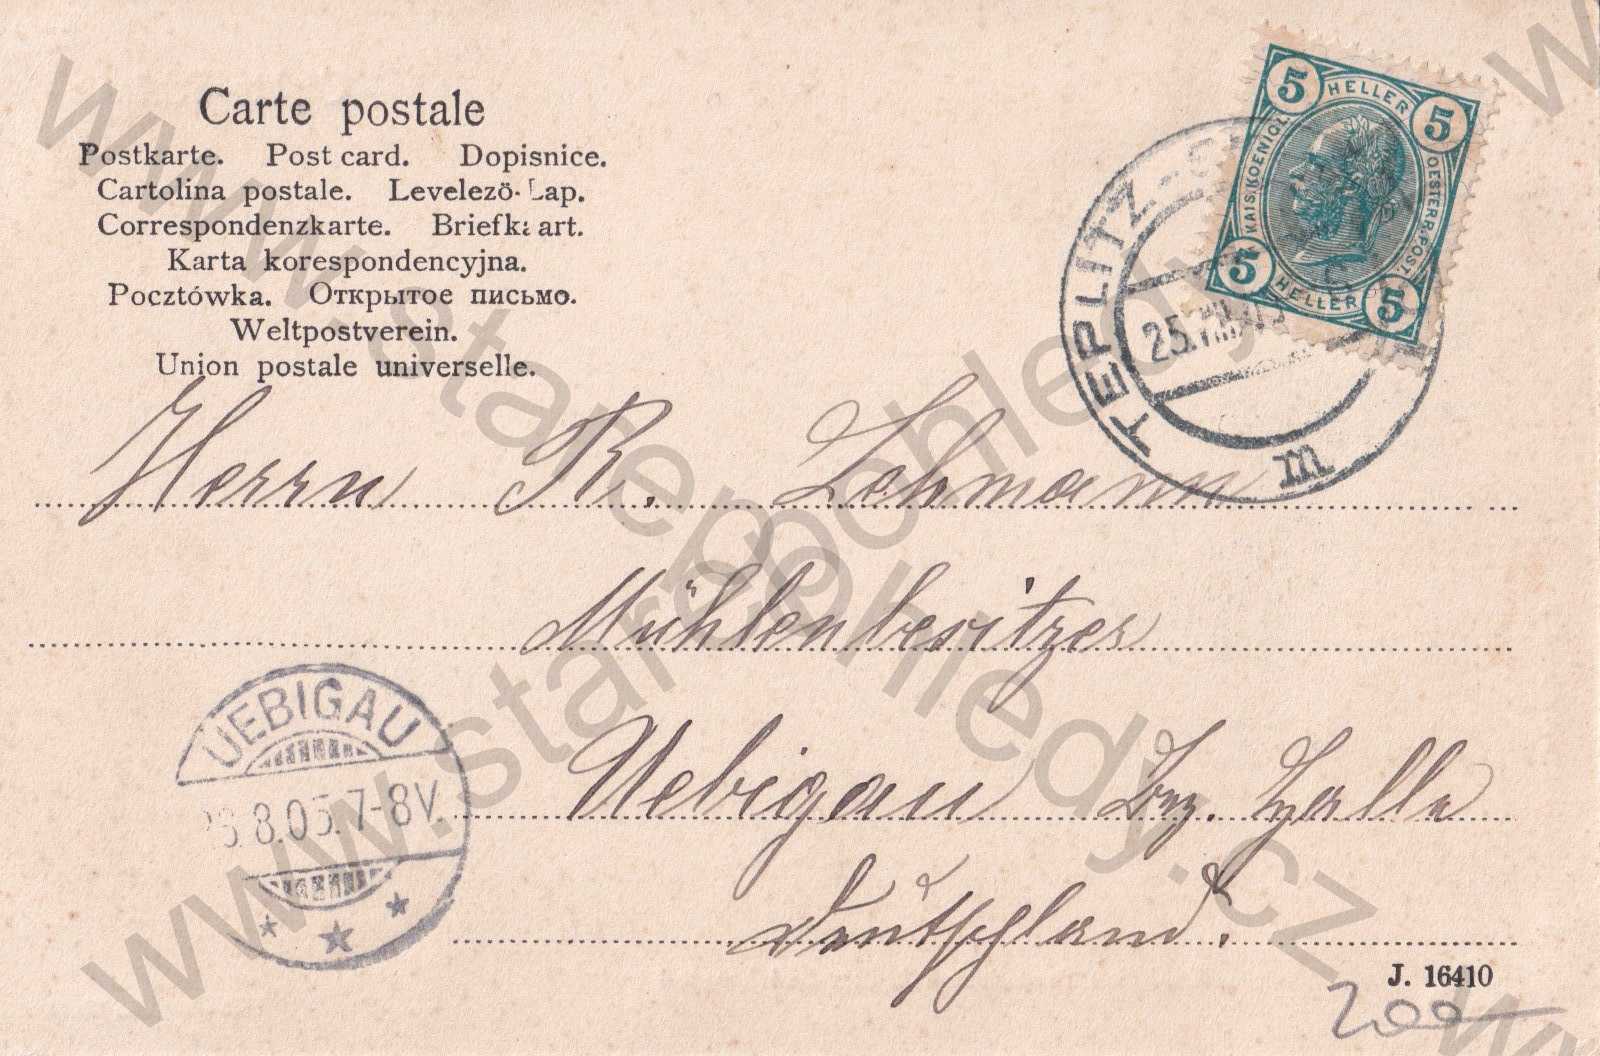 Carte postale
Postkarte. Post card. Dopisnice.
Cartolina postale. Levelezö-Lap.
Correspondenzkarte. Briefkaart.
Karta korespondencyjna.
Pocztówka. Открытое письмо.
Weltpostverein.
Union postale universelle.
5 HELLER 5
KAIS. KOENIGL. OESTERR. POST.
5 HELLER 5
TEPLITZ
25.VIII.05
III
Herrn R. Lehmann
Mühlenbesitzer
Uebigau Bez. Halle
Deutschland.
UEBIGAU
8.05.7-8V.
J. 16410
200
www.starepohledy.cz
www.starepohledy.cz